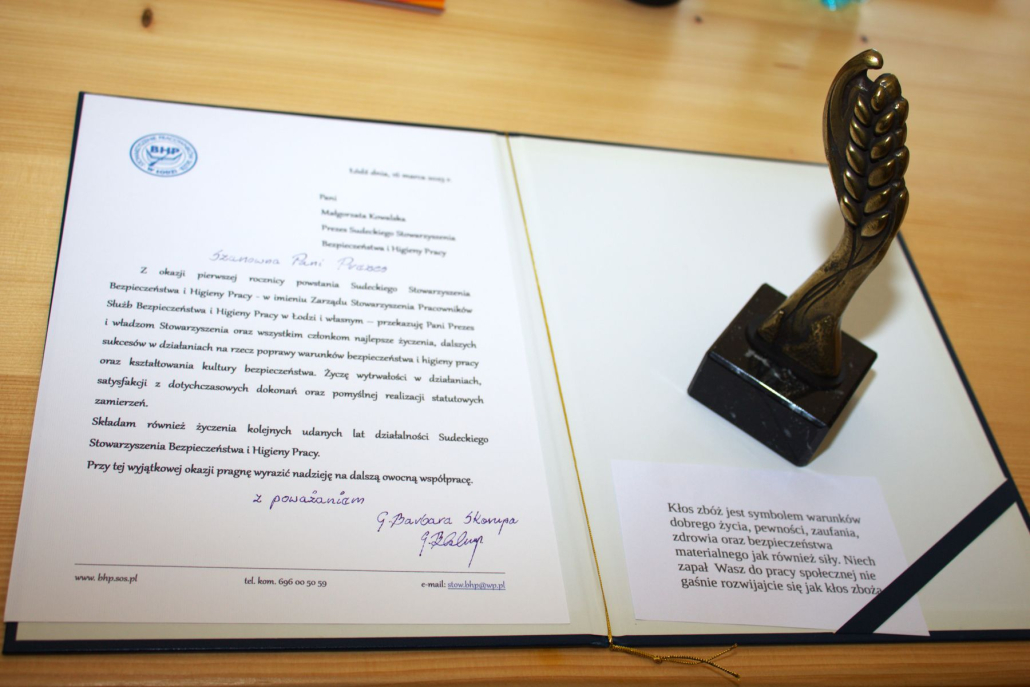 BHP
W ŁODZI
Łódź dnia, 16 marca 2015 r.
Pani
Małgorzata Kowalska
Prezes Sudeckiego Stowarzyszenia
Bezpieczeństwa i Higieny Pracy
Szanowna Pani Prezes
Z okazji pierwszej rocznicy powstania Sudeckiego Stowarzyszenia
Bezpieczeństwa i Higieny Pracy - w imieniu Zarządu Stowarzyszenia Pracowników
Służb Bezpieczeństwa i Higieny Pracy w Łodzi i własnym – przekazuję Pani Prezes
i władzom Stowarzyszenia oraz wszystkim członkom najlepsze życzenia, dalszych
sukcesów w działaniach na rzecz poprawy warunków bezpieczeństwa i higieny pracy
oraz kształtowania kultury bezpieczeństwa. Życzę wytrwałości w działaniach,
satysfakcji z dotychczasowych dokonań oraz pomyślnej realizacji statutowych
zamierzeń.
Składam również życzenia kolejnych udanych lat działalności Sudeckiego
Stowarzyszenia Bezpieczeństwa i Higieny Pracy.
Przy tej wyjątkowej okazji pragnę wyrazić nadzieję na dalszą owocną współpracę.
z poważaniem
G. Barbara Skorupa
www. bhp.sos.pl tel. kom. 696 00 50 59 e-mail: stow.bhp@wp.pl
Kłos zbóż jest symbolem warunków
dobrego życia, pewności, zaufania,
zdrowia oraz bezpieczeństwa
materialnego jak również siły. Niech
zapał Wasz do pracy społecznej nie
gaśnie rozwijajcie się jak kłos zboża